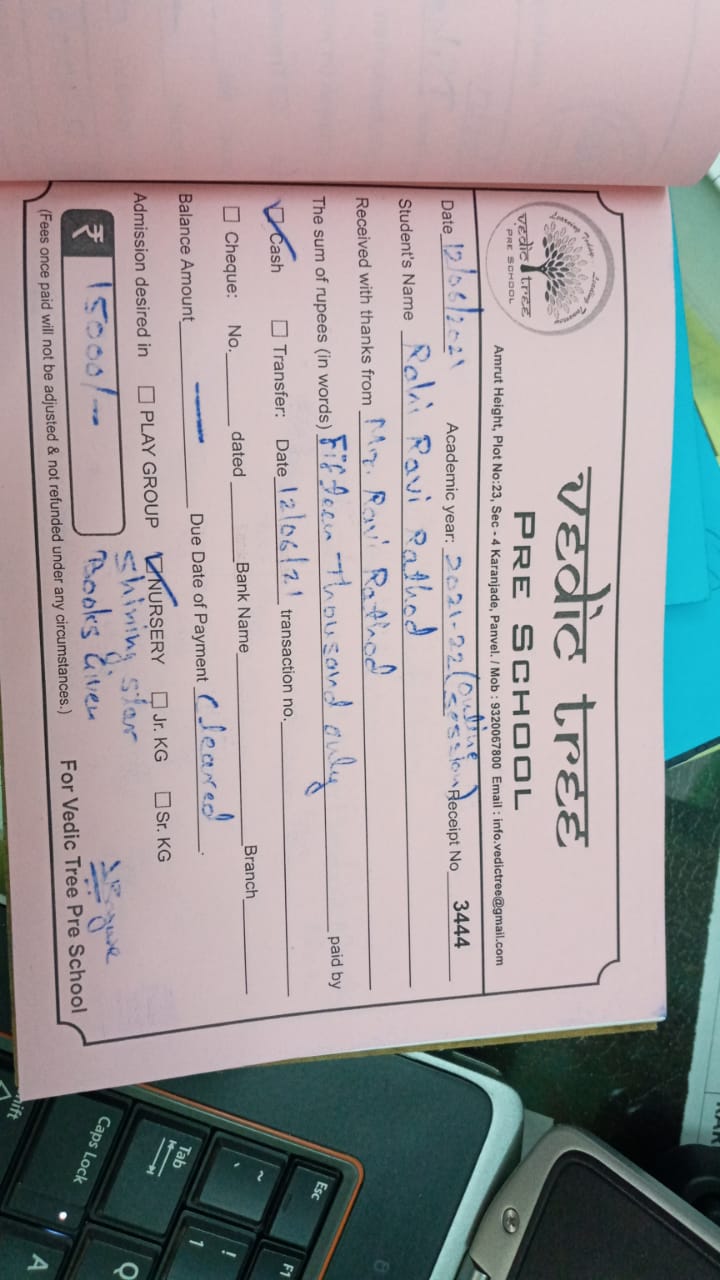 vedic tree
PRE SCHOOL
Learning Today... Leading Tomorrow
vedic tree
PRE SCHOOL
Amrut Height, Plot No:23, Sec - 4 Karanjade, Panvel. / Mob : 9320067800 Email : info.vedictree@gmail.com
Date 12/06/2021 Academic year: 2021-22 (Online session) Receipt No 3444
Student's Name Rahi Ravi Rathod
Received with thanks from Mr. Ravi Rathod
The sum of rupees (in words) Fifteen Thousand only paid by
Cash Transfer: Date 12/06/21 transaction no.
Cheque: No. dated Bank Name Branch
Balance Amount — Due Date of Payment Cleared.
Admission desired in PLAY GROUP NURSERY Jr. KG Sr. KG
Shining star
₹ 15000/- Books Given
For Vedic Tree Pre School
(Fees once paid will not be adjusted & not refunded under any circumstances.)
Esc
F1
~
`
!
1
Tab
Q
Caps Lock
A